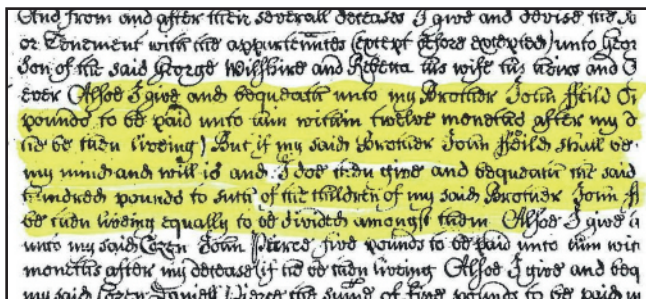 And from and after their severall deceases I give and devise the sd
or Tenement with the appurtennces (except before excepted) unto Geor
Son of the said George Wilshire and Rebecca his wife his heires and
ever Alsoe I give and bequeath unto my Brother John Feild
pounds to be paid unto him within twelve moneths after my d
he be then liveing) But if my said Brother John Feild shall be
my mind and will is and I doe then give and bequeath the said
hundred pounds to such of the Children of my said Brother John ff
be then liveing equally to be divided amongst them Alsoe I give
unto my said Cozen John Pierce five pounds to be paid unto him wit
moneths after my decease (if he be then liveing Alsoe I give and beq
my said Cozen Daniell Pierce the summe of five pounds to be paid